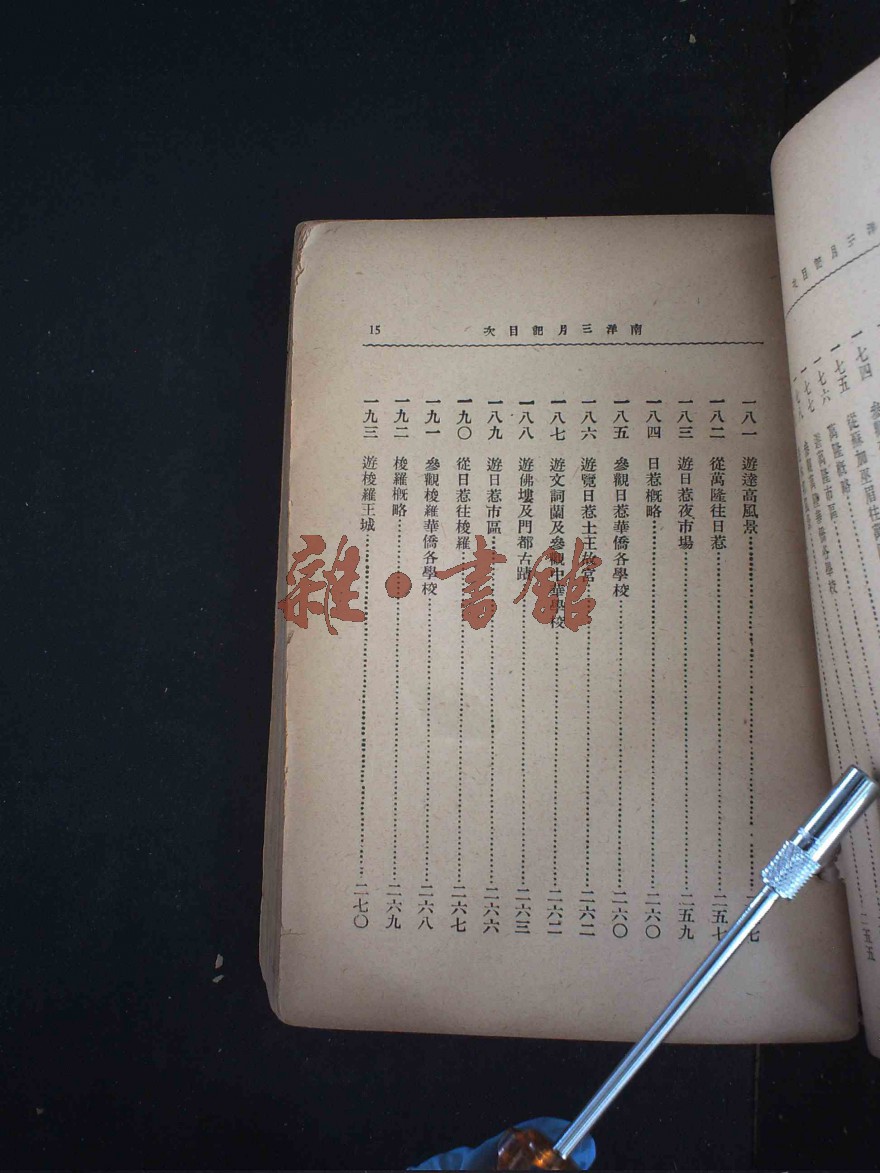 南洋三月記目次 15
一八一 遊達高風景
一八二 從萬隆往日惹 二五七
一八三 遊日惹夜市場 二五九
一八四 日惹概略 二六〇
一八五 參觀日惹華僑各學校 二六〇
一八六 遊覽日惹土王故宮 二六二
一八七 遊文詞蘭及參觀中華學校 二六二
一八八 遊佛塿及門都古蹟 二六三
一八九 遊日惹市區 二六六
一九〇 從日惹往梭羅 二六七
一九一 參觀梭羅華僑各學校 二六八
一九二 梭羅概略 二六九
一九三 遊梭羅王城 二七〇
雜·書館
洋三月記目次
一七四
一七五 從蘇加巫眉往萬
一七六 萬隆概略
一七七 遊萬隆市區
參觀萬隆華僑各學校
二五五